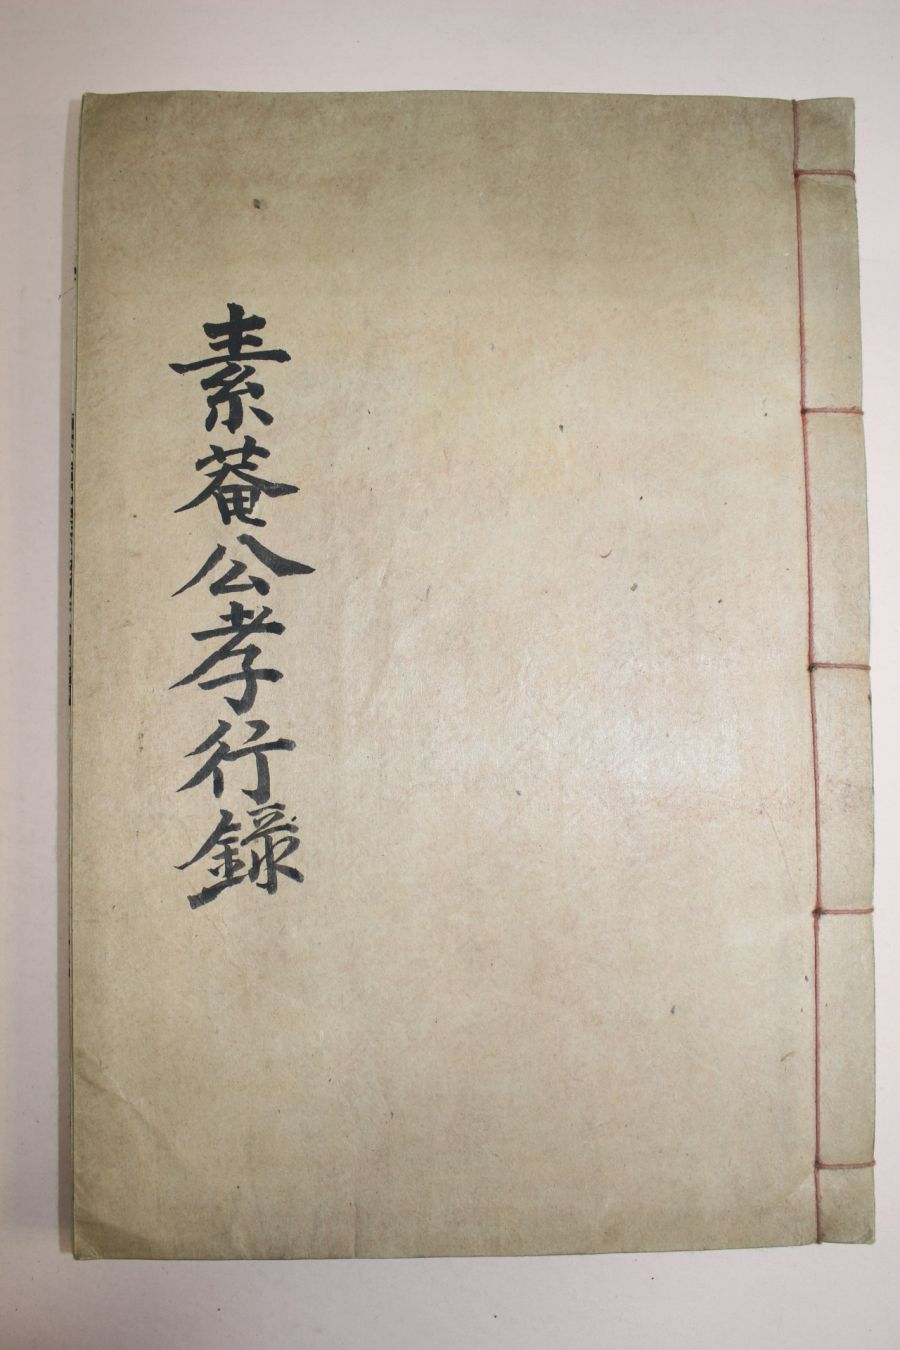 素菴公孝行錄